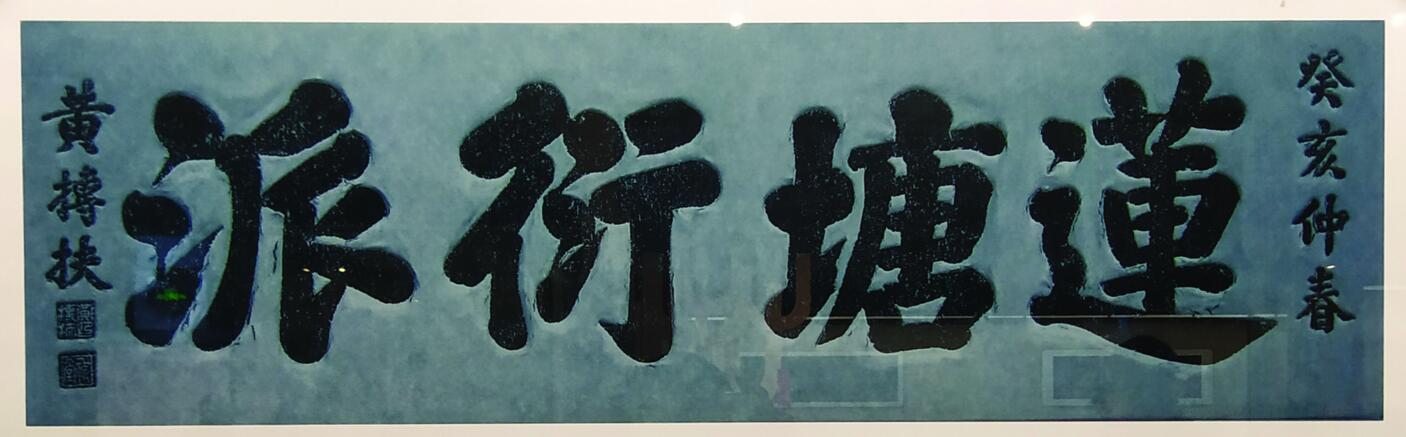 癸亥仲春
蓮塘衍派
黃摶扶